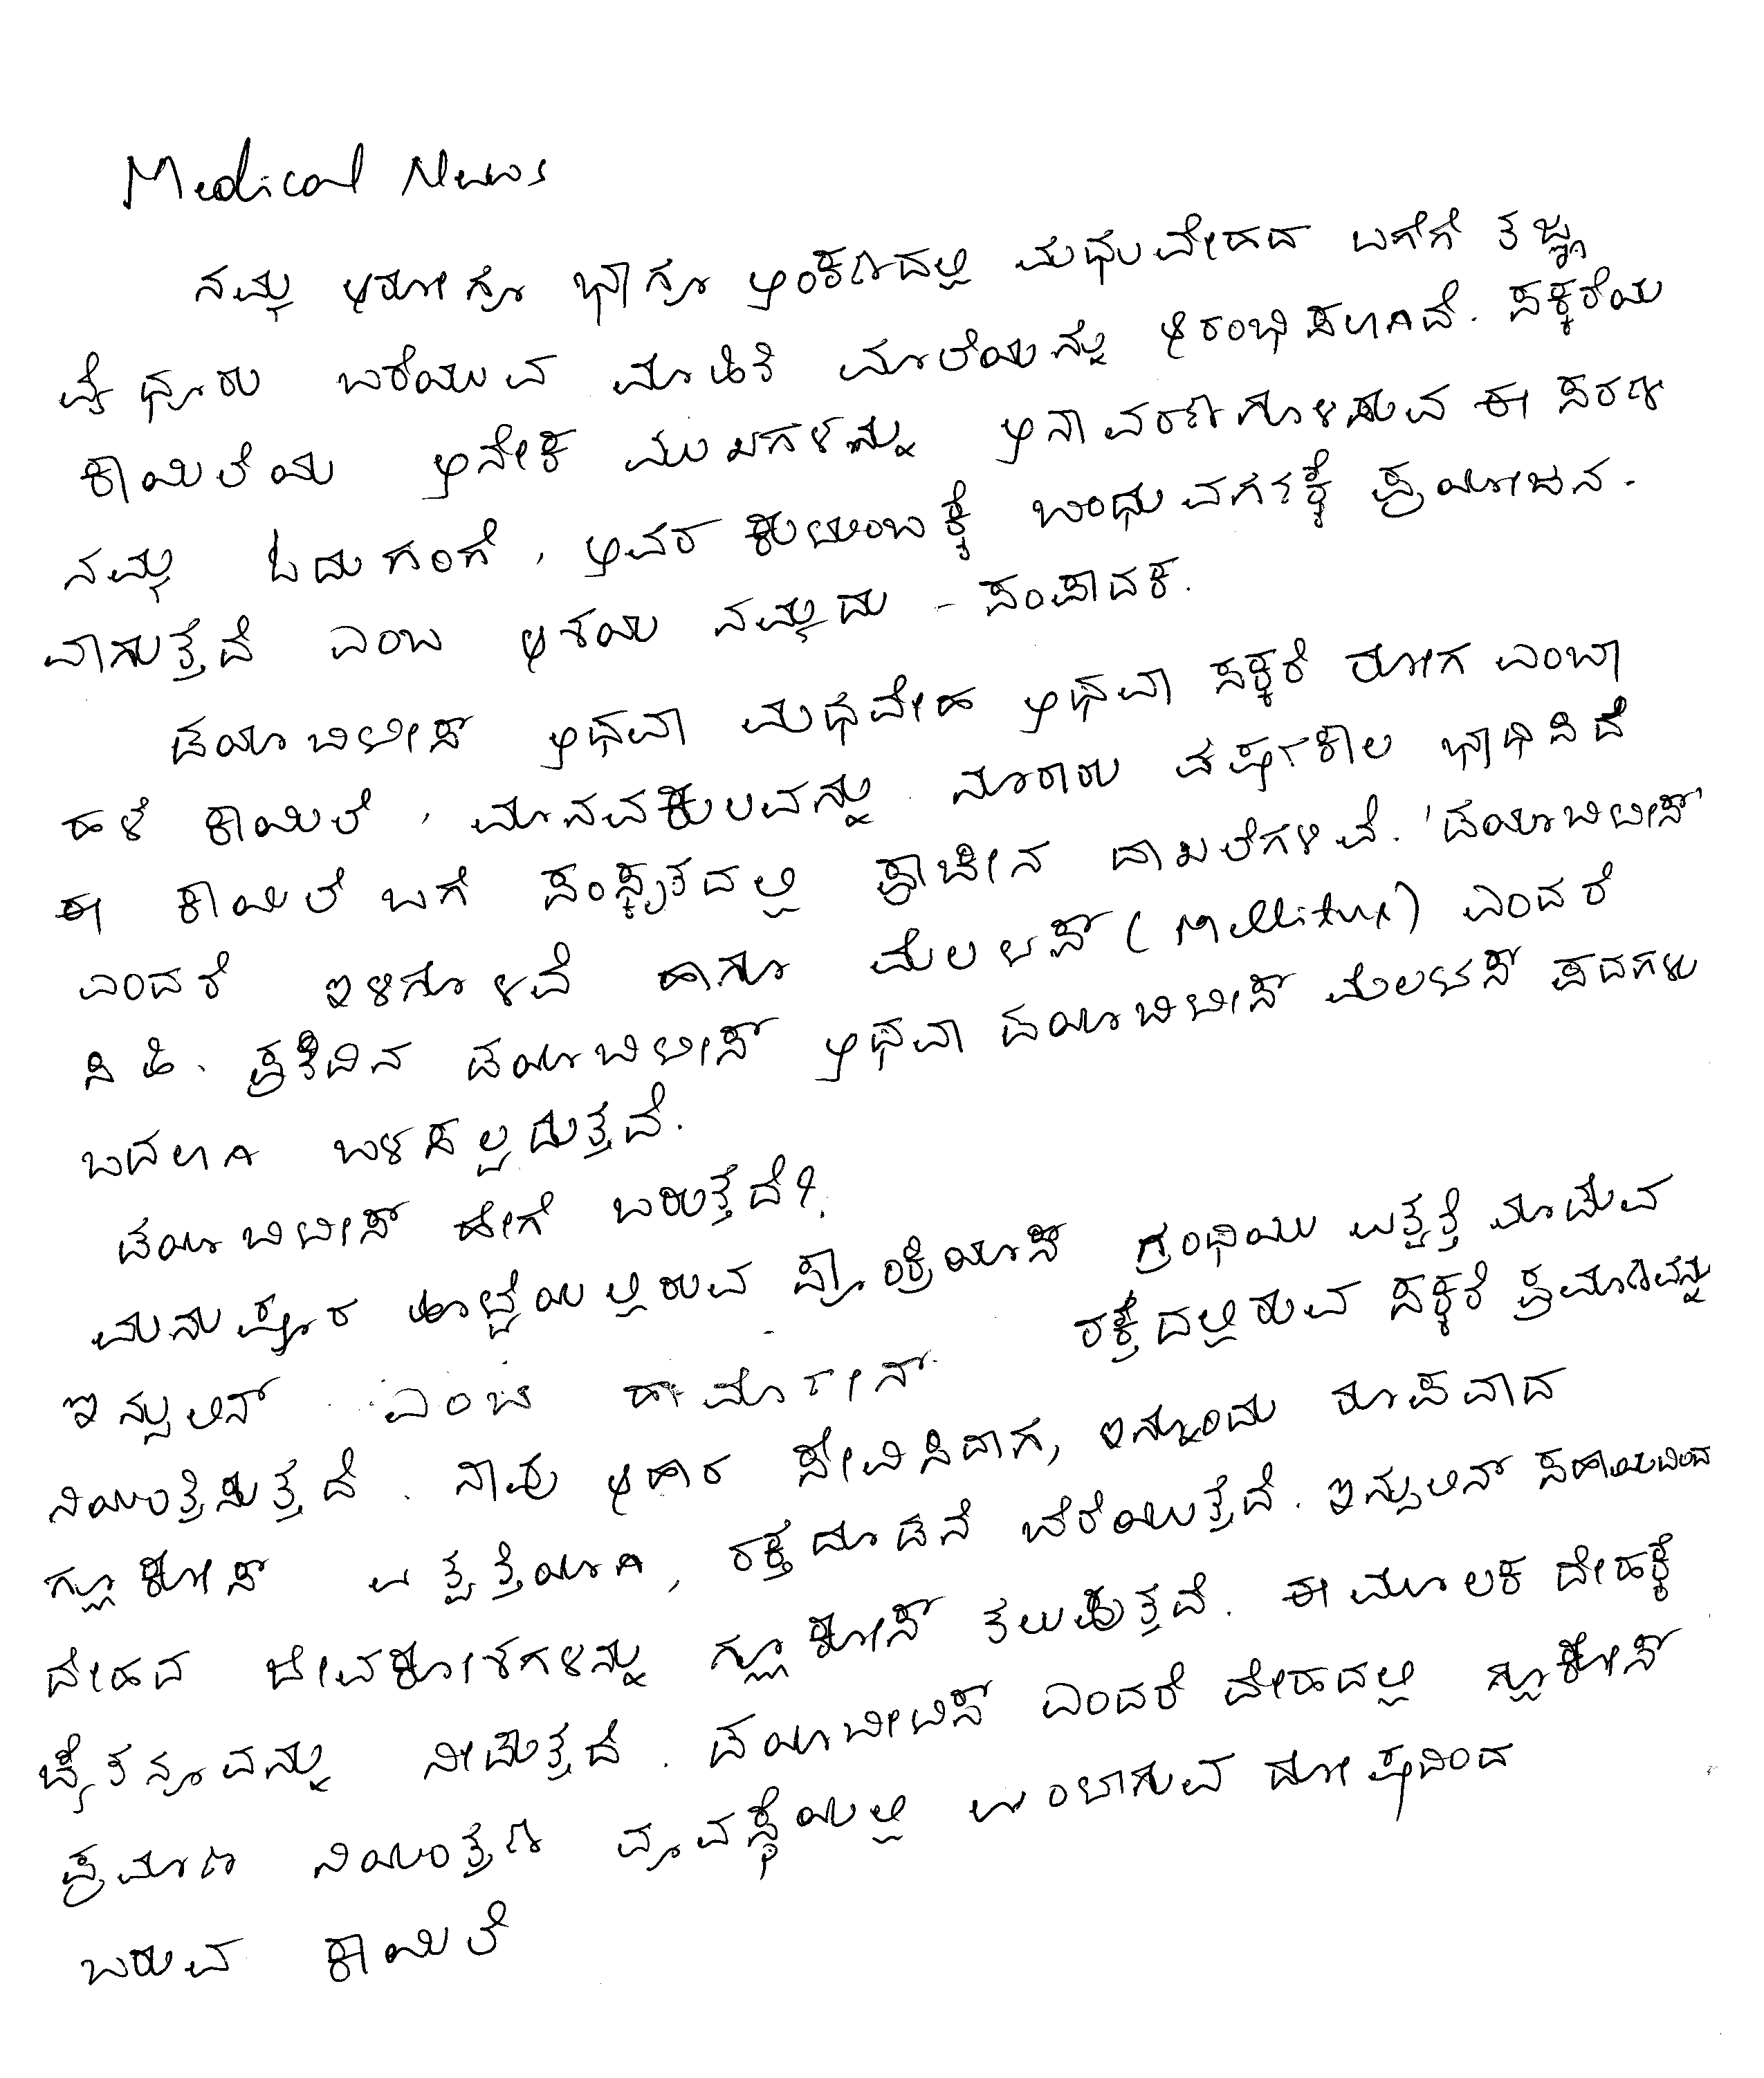 Medical News
ನಮ್ಮ ಆರೋಗ್ಯ ಭಾಗ್ಯ ಅಂಕಣದಲ್ಲಿ ಮಧುಮೇಹದ ಬಗೆಗೆ ತಜ್ಞ
ವೈಧ್ಯರು ಬರೆಯುವ ಮಾಹಿತಿ ಮಾಲೆಯನ್ನು ಆರಂಭಿಸಲಾಗಿದೆ. ಸಕ್ಕರೆಯ
ಕಾಯಿಲೆಯ ಅನೇಕ ಮುಖಗಳನ್ನು ಅನಾವರಣಗೊಳಿಸುವ ಈ ಸರಣಿ
ನಮ್ಮ ಓದುಗಂಗೆ, ಅವರ ಕುಟುಂಬಕ್ಕೆ ಬಂಧುವರ್ಗಕ್ಕೆ ಪ್ರಯೋಜನ.
ವಾಗುತ್ತದೆ ಎಂಬ ಆಶಯ ನಮ್ಮದು - ಸಂಪಾದಕ.
ಡಯಾಬಿಟೀಸ್ ಅಥವಾ ಮಧಮೇಹ ಅಥವಾ ಸಕ್ಕರೆ ರೋಗ ಎಂಬಾ
ಹಳೆ ಕಾಯಿಲೆ, ಮಾನವಕುಲವನ್ನು ನೂರಾರು ವರ್ಷಕಾಲ ಭಾಧಿಸಿದೆ
ಈ ಕಾಯಿಲೆ ಬಗೆ ಸಂಸ್ಕೃತದಲ್ಲಿ ಪ್ರಾಚೀನ ದಾಖಲೆಗಳಿವೆ. 'ಡಯಾಬಿಟೀಸ್'
ಎಂದರೆ ಇಳಿಗೊಳವೆ ಹಾಗೂ ಮೆಲಟಸ್ (Mellitus) ಎಂದರೆ
ಸಿಹಿ. ಪ್ರತಿದಿನ ಡಯಾಬಿಟೀಸ್ ಅಥವಾ ಡಯಾಬಿಟೀಸ್ ಮೆಲಟಸ್ ಪದಗಳು
ಬದಲಾಗಿ ಬಳಸಲ್ಪಡುತ್ತವೆ.
ಡಯಾಬಿಟೀಸ್ ಹೇಗೆ ಬರುತ್ತದೆ?
ಮನುಷ್ಯರ ಹೊಟ್ಟೆಯಲ್ಲಿರುವ ಪ್ಯಾಂಕ್ರಿಯಾಸ್ ಗ್ರಂಥಿಯು ಉತ್ಪತ್ತಿ ಮಾಡುವ
ಇನ್ಸುಲಿನ್ ಎಂಬ ಹಾರ್ಮೋನ್ ರಕ್ತದಲ್ಲಿರುವ ಸಕ್ಕರೆ ಪ್ರಮಾಣವನ್ನು
ನಿಯಂತ್ರಿಸುತ್ತದೆ. ನಾವು ಆಹಾರ ಸೇವಿಸಿದಾಗ, ಇನ್ನೊಂದು ರೂಪವಾದ
ಗ್ಲೂಕೋಸ್ ಉತ್ಪತ್ತಿಯಾಗಿ, ರಕ್ತದೊಡನೆ ಬೆರೆಯುತ್ತದೆ. ಇನ್ಸುಲಿನ್ ಸಹಾಯದಿಂದ
ದೇಹದ ಜೀವಕೋಶಗಳನ್ನು ಗ್ಲೂಕೋಸ್ ತಲುಪುತ್ತವೆ. ಈ ಮೂಲಕ ದೇಹಕ್ಕೆ
ಚೈತನ್ಯವನ್ನು ನೀಡುತ್ತದೆ. ಡಯಾಬೀಟಿಸ್ ಎಂದರೆ ದೇಹದಲ್ಲಿ ಗ್ಲೂಕೋಸ್
ಪ್ರಮಾಣ ನಿಯಂತ್ರಣ ವ್ಯವಸ್ಥೆಯಲ್ಲಿ ಉಂಟಾಗುವ ದೋಷದಿಂದ
ಬರುವ ಕಾಯಿಲೆ